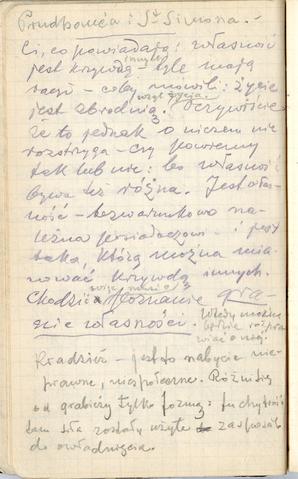 Proudhon'a i St Simona. -
Ci, co powiadają: własność
jest krzywdą - tyle mają
racji - coby mówili: życie
jest zbrodnią. Oczywiście
że to jednak o niczem nie
rozstrzyga - czy powiemy
tak lub nie: bo własność
bywa też różna. Jest włas-
ność - bezwarunkowo na-
leżna posiadaczowi - i jest
taka, którą można mia-
nować krzywdą innych.
Chodzi o poznanie gra-
nic własności. Wtedy można
będzie rozpra
wiać o niej.
Kradzież - jest to nabycie nie-
prawne, niespołeczne. Różni się
od grabieży tylko formą: tu chytrość
tam siła zostały użyte za sposób
do owładnięcia.